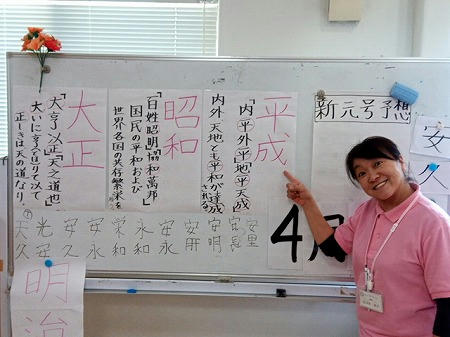 新元号予想
安
久
4
平成
「内平外成」「地平天成」
内外、天地とも平和が達成
される
昭和
「百姓昭明」「協和萬邦」
国民の平和および
世界各国の共存繁栄を
大正
「大亨以正」「天之道也」
大いに亨り通りて以て
正しきは天の道なり。
安里
安明
安永
永和
栄和
安永
安久
光安
天久
明治